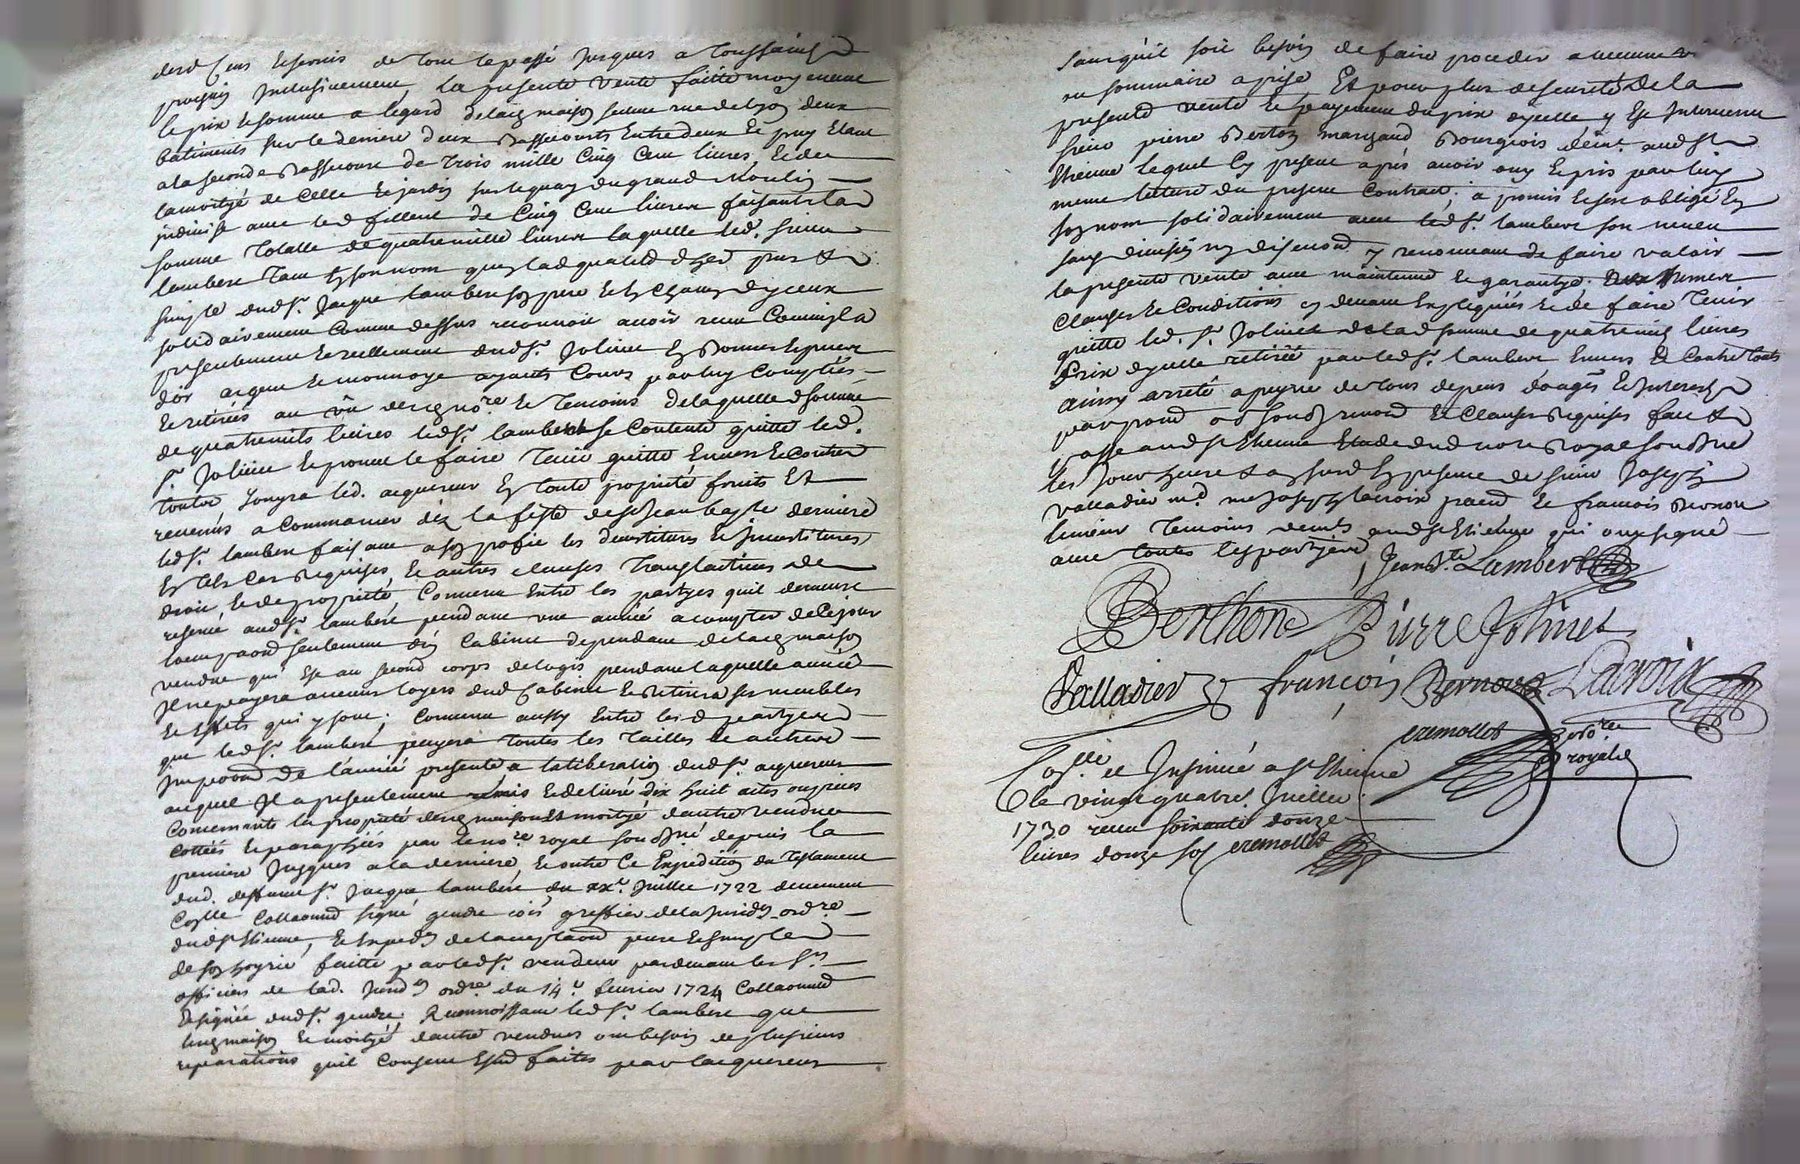 desd Cens et servis de tout le passé jusques a toussaints
prochain inclusivement, La presente vente faitte moyennant
le prix et somme a legard de lad maison size rue de lyon deux
batiments sur le derriere deux bassecourts entredeux et puy etant
a la seconde bassecourt de trois mille cinq cent livres, et de
la moityé de celle et jardin sur le quay du grand moulin
indivise avec led fillent de cinq cent livres faisants la
somme totalle de quatre mille livres laquelle led. sieur
lambert tant en son nom quen lad qualité dher pur et
simple dud sr. Jacque lambert son pere et en chacun diceux
solidairement comme dessus reconnoit avoir receu comptant
presentement et reellement dud sr. Jolinet en bonnes especes
dor argent et monnoye ayants cours par luy comptées
et retirées au vû desd no.re et temoins de laquelle d somme
de quatre mils livres led sr. lambert se contente quitte led.
sr. Jolinet et promet le faire tenir quitte envers et contre
toutes, Jouyra led. acquereur en toute propriété fruits et
revenus a commancer dez la feste de st Jean baptiste derniere
led sr. lambert faisant a son profit les devestitures et investitures
en tels cas requises et autres clauses translatives de
droit, et de propriété, Convenu entre les partyes quil demeure
reservé aud sr. lambert pendant une année a compter de ce jour
seulement un cabinet dependant de lad maison
vendue qui est au second corps de logis pendant laquelle année
Il ne payera aucuns loyers dud cabinet et retirera ses meubles
et effets qui y sont; convenu aussy entre lesd partyes
que led sr. lambert payera toutes les tailles et autres
impots de lannée presente a la liberation dud sr. acquereur
auquel Il a presentement remis et delivré dix huit actes ou pieces
concernants la propriété desd maison et moityé dautre vendue
cottées et paraphées par le no.re royal soussné depuis la
premiere jusques a la derniere, et outre ce Expedition du testament
dud. deffunt sr. Jacque lambert du xxe. Juillet 1722 duement
Conllé Collationné signé gendre greffier de la Jurid.on ord.re
dud st Etienne, et Exped.on de lacceptation pure et simple
de son hoyrie faitte par led sr. vendeur pardevant les srs
officiers de lad. Jurid.on ord.re du 14e. fevrier 1724 Collationné
et signée dud sr. gendre. Reconnoissant led sr. lambert que
lesd maison et moityé dautre vendues ont besoin de plusieurs
reparations quil consent estre faites par lacquereur
sans quil soit besoin de faire proceder a aucune
ou sommaire aprise Et pour plus de seureté de la
presente vente et payement du prix dycelle y Est Intervenu
sieur pierre Berton marchand Bourgeois deint. aud st
Etienne lequel icy present aprés avoir ouy et pris par luy
meme lecture du present contract, a promis et sest obligé En
son nom solidairement avec led sr. lambert son neveu
sans division ny discution y renonceant de faire valoir
la presente vente avec maintenue et garantye aux memes
clauses et Conditions cy devant Expliquées et de faire tenir
quitte led. sr. Jolinet de lad somme de quatre mil livres
Prix dycelle retirée par led sr. lambert Envers et contre touts
ainsy arreté a peyne de tous depens domages et interests
par promesse obligation soumission renonciation et clauses requises fait et
passé aud st Etienne Etude dud notre Royal soussné
les Jour heure et an susd En presence de sieur Joseph
valladier md. me Joseph lacroix praticien et francois Bernou
limeur temoins demts aud st Etienne qui ont signé
avec toutes les partyes, Jean B.te Lambert
Berthon Pierre Jolinet
Valladier françois Bernou Lacroix
cremollet no.re
royal
Conllé et Insinué a st Etienne
le vingt quatre Juillet
1730 receu soixante douze
livres douze sol cremollet